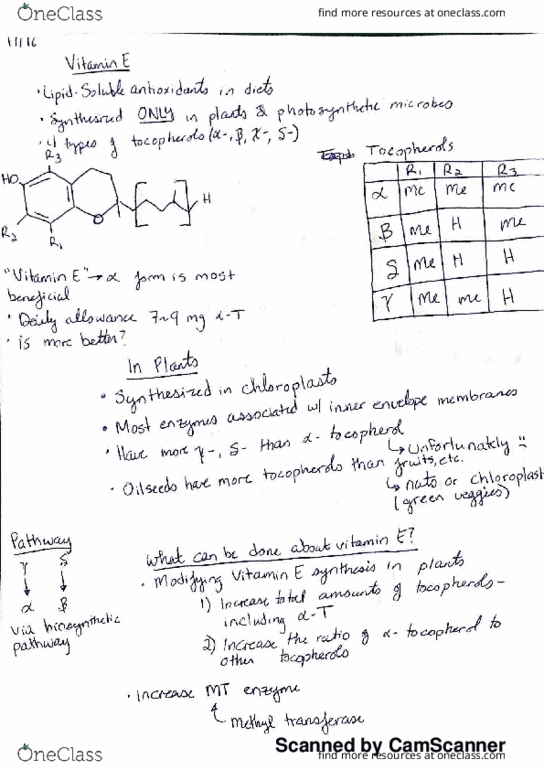 OneClass
find more resources at oneclass.com
11/16
Vitamin E
• Lipid-Soluble antioxidants in diets
• Synthesized ONLY in plants & photosynthetic microbes
• 4 types of tocopherols (α-, β, γ-, δ-)
Tocopherols
R1 R2 R3
α me me me
β me H me
δ me H H
γ me me H
R3
HO
O
H
R2
R1
"Vitamin E" → α form is most
beneficial
• Daily allowance 7-9 mg α-T
• is more better?
In Plants
• Synthesized in chloroplasts
• Most enzymes associated w/ inner envelope membranes
• Have more γ-, δ- than α-tocopherol
↳ unfortunately
• Oilseeds have more tocopherols than fruits, etc.
↳ no or chloroplast
(green veggies)
Pathway
γ δ
↓ ↓
α β
via biosynthetic
pathway
What can be done about vitamin E?
• Modifying Vitamin E synthesis in plants
1) Increase total amounts of tocopherols-
including α-T
2) Increase the ratio of α-tocopherol to
other tocopherols
• increase MT enzyme
methyl transferase
Scanned by CamScanner
OneClass
find more resources at oneclass.com